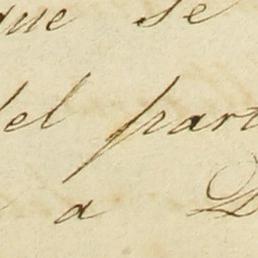 que se
del part
a D